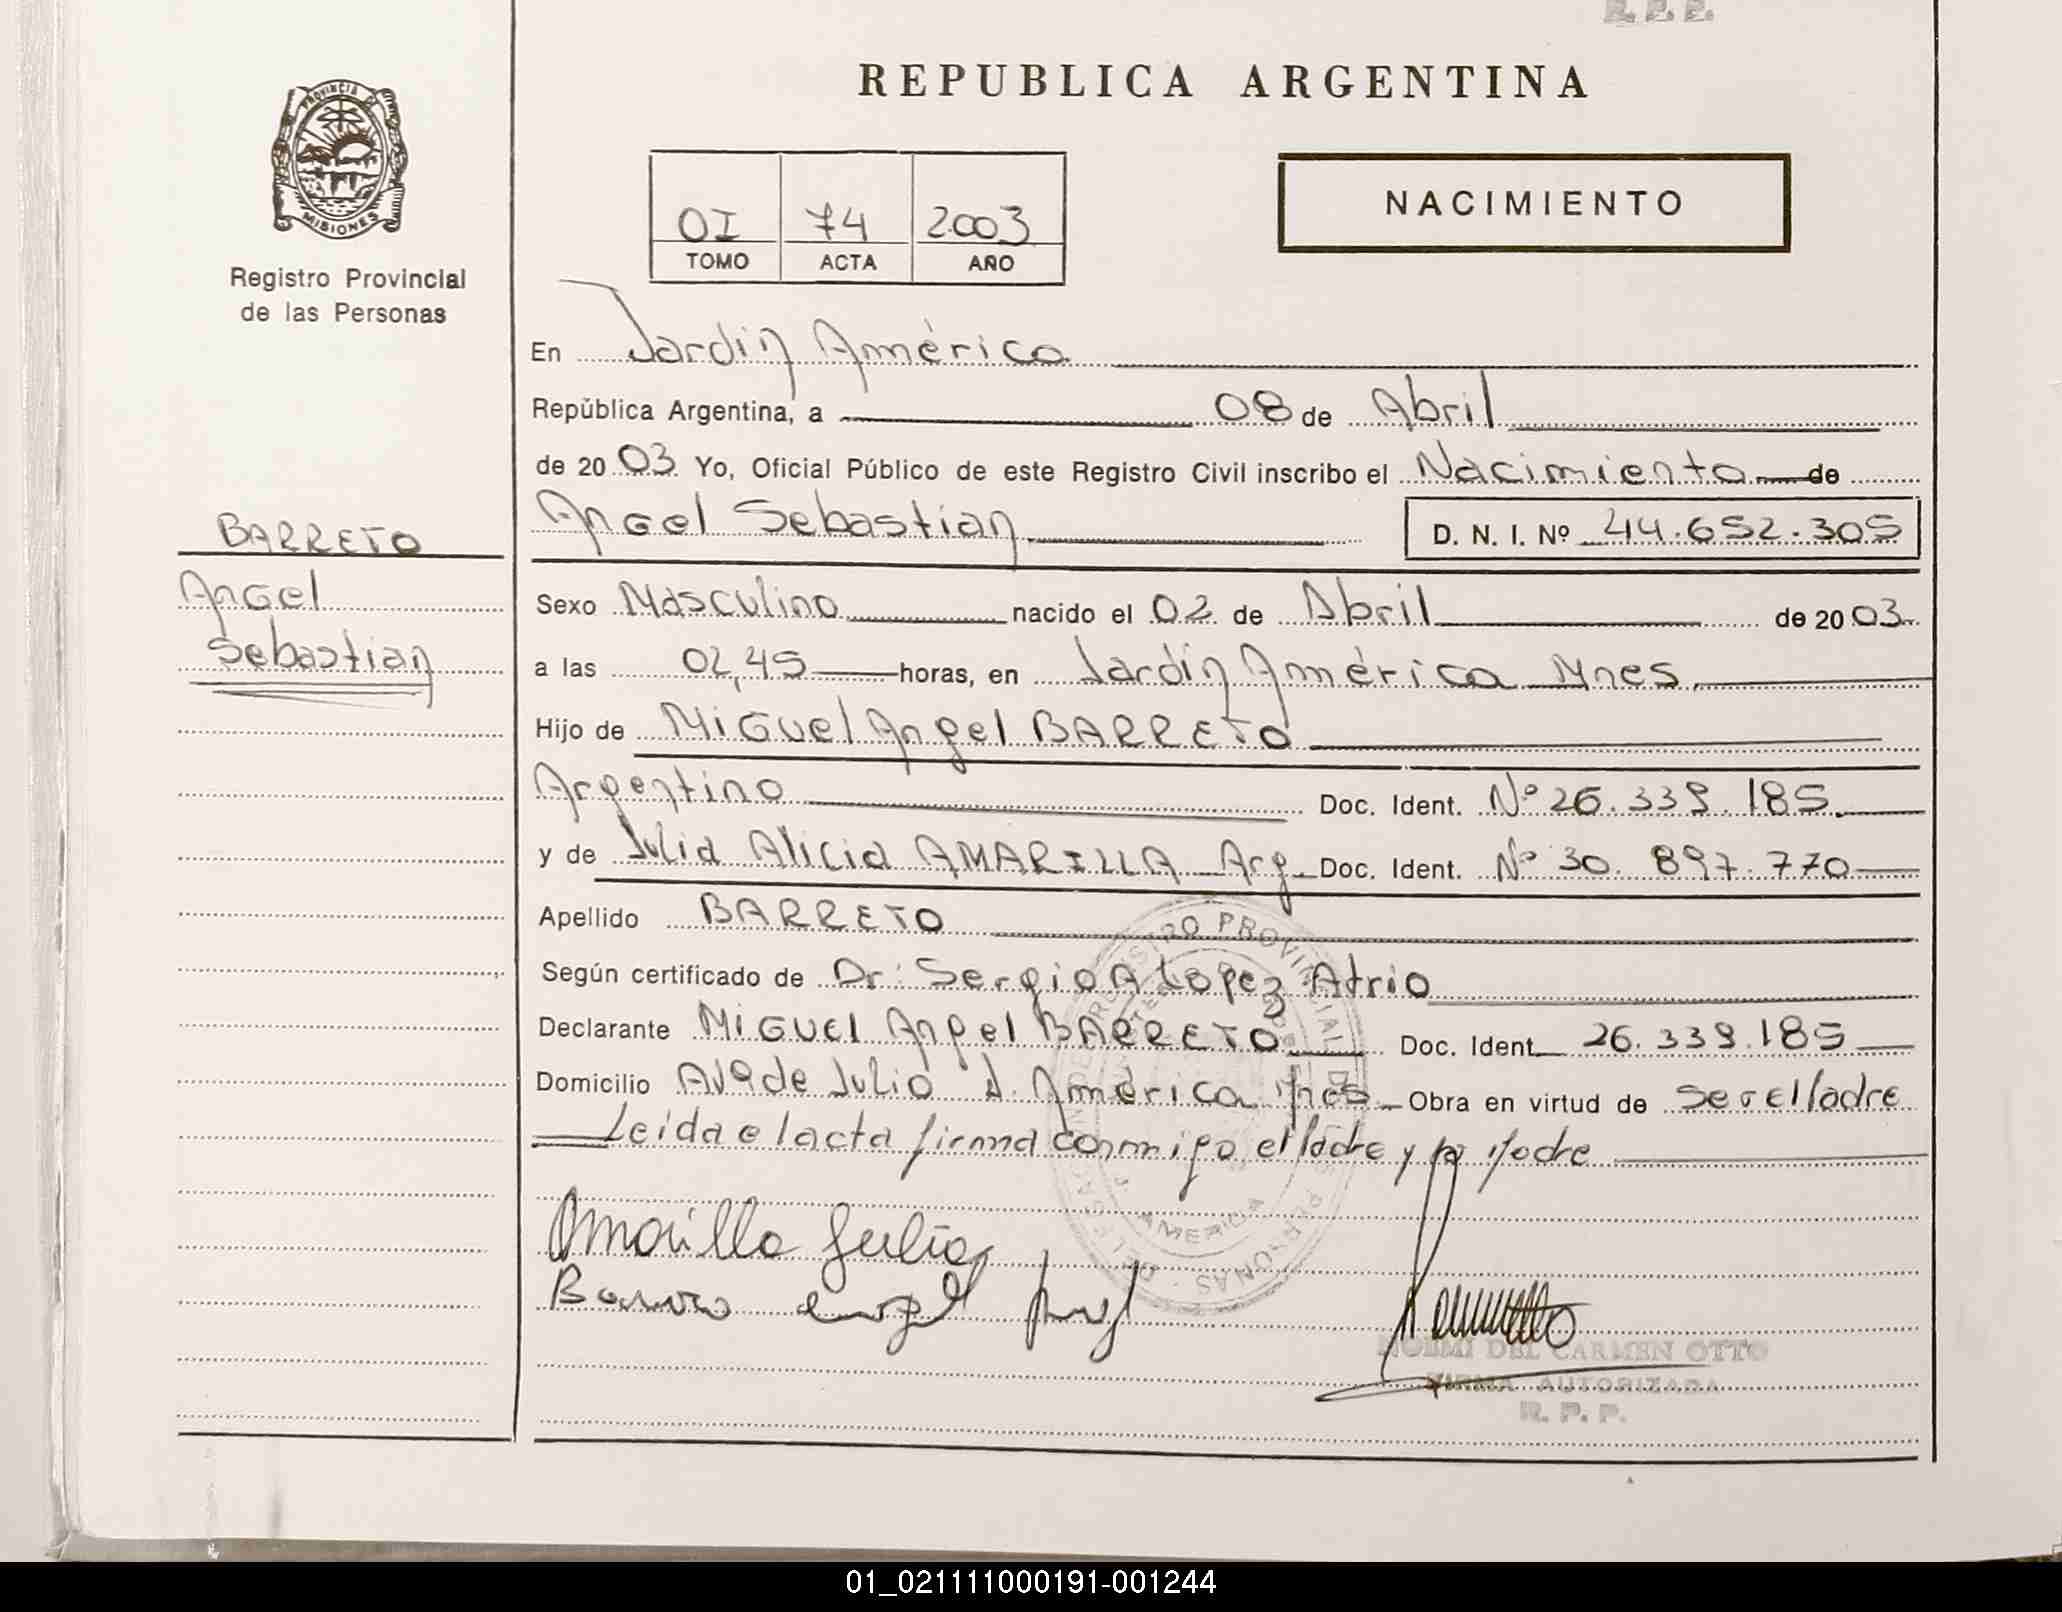 R. P. P.
REPUBLICA ARGENTINA
PROVINCIA D
MISIONES
Registro Provincial
de las Personas
OI 74 2003
TOMO ACTA AÑO
NACIMIENTO
En Jardin América
República Argentina, a 08 de Abril
de 20 03 Yo, Oficial Público de este Registro Civil inscribo el Nacimiento de
Angel Sebastian D. N. I. Nº 44.652.305
BARRETO
Angel
Sebastian
Sexo Masculino nacido el 02 de Abril de 20 03
a las 02,45 horas, en Jardin América Mnes.
Hijo de Miguel Angel BARRETO
Argentino Doc. Ident. Nº 26.339.185.
y de Julia Alicia AMARILLA Arg Doc. Ident. Nº 30.897.770
Apellido BARRETO
Según certificado de Dr: Sergio A Lopez Atrio
Declarante MiGUEl Angel BARRETO Doc. Ident. 26.339.185
Domicilio Av 9 de Julio J. América Mnes Obra en virtud de ser el Padre
Leida el acta firma conmigo el Padre y la Madre
Amarilla Julia
Barreto angel
REGISTRO PROVINCIAL DE LAS PERSONAS
AMERICA
NOEMI DEL CARMEN OTTO
FIRMA AUTORIZADA
R. P. P.
01_021111000191-001244